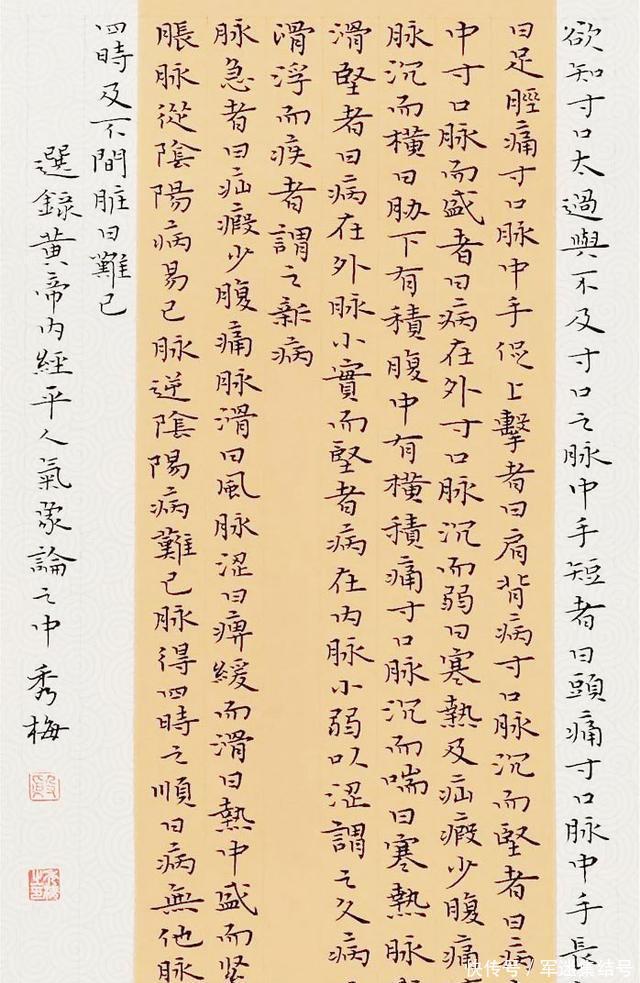 欲知寸口太過與不及寸口之脉中手短者曰頭痛寸口脉中手長
曰足脛痛寸口脉中手促上擊者曰肩背病寸口脉沉而堅者曰病
中寸口脉而盛者曰病在外寸口脉沉而弱曰寒熱及疝瘕少腹痛
脉沉而横曰胁下有積腹中有横積痛寸口脉沉而喘曰寒熱脉
滑堅者曰病在外脉小實而堅者病在内脉小弱以涩謂之久病
滑浮而疾者謂之新病
脉急者曰疝瘕少腹痛脉滑曰風脉涩曰痹緩而滑曰熱中盛而緊
脹脉從陰陽病易已脉逆陰陽病難已脉得四時之順曰病無他脉
四時及不間脏曰難已
選録黄帝内經平人氣象論之中 秀梅
快传号／军迷集结号